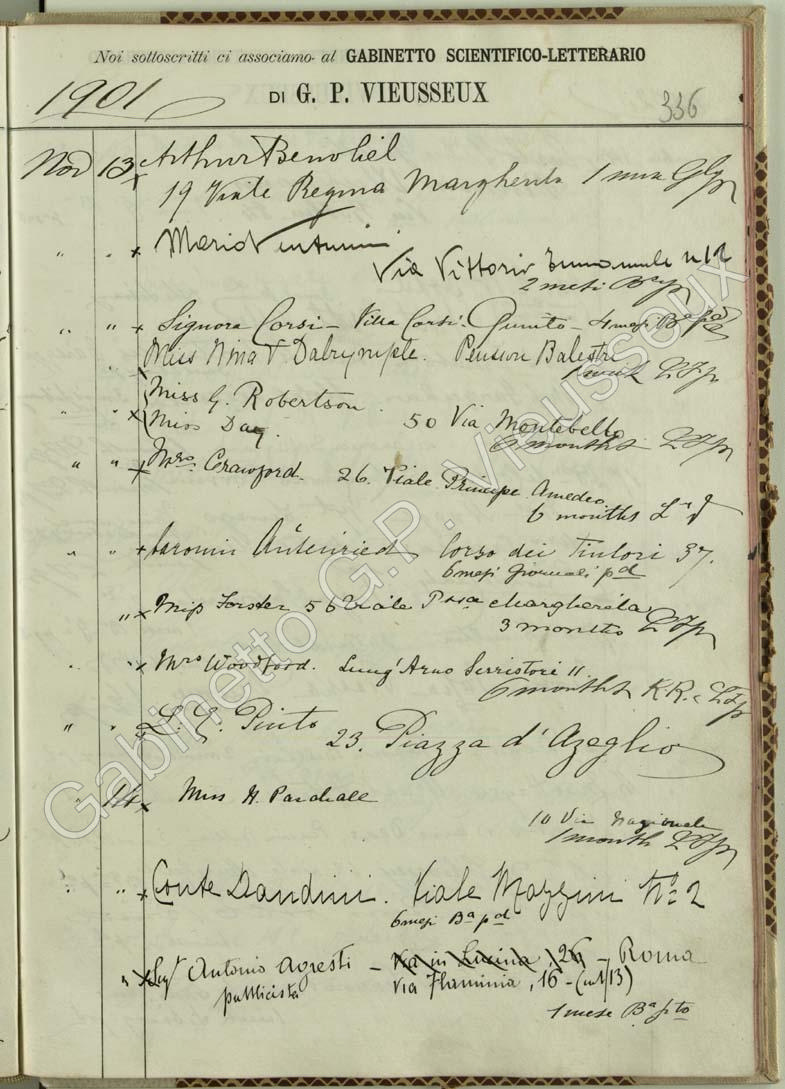 Noi sottoscritti ci associamo al GABINETTO SCIENTIFICO-LETTERARIO
1901 DI G. P. VIEUSSEUX 336
Nov 13 x Arthur Benoliel
19 Viale Regina Margherita 1
" x Mario Venturini
Via Vittorio Emanuele n 12
2 mesi
" " x Signora Corsi - Villa Corsi. Quinto - 4 mesi
Miss Nina V Dalrymple. Pension Balestri
1
Miss G. Robertson
" " x Miss Day. 50 Via Montebello
6 months
" " x Mrs Crawford. 26. Viale Principe Amedeo
6 months
" " x Autenried Corso dei Tintori 37.
6 mesi Giornali pd
" x Miss Forster 56 Viale Pssa Margherita
3 months
" " x Mrs Woodford. Lung'Arno Serristori 11
6 months
" " x L. G. Pinto 23. Piazza d'Azeglio
" 14 x Miss H. Paschall
10 Via Nazionale
1 month
" " x Conte Dandini. Viale Mazzini No 2
6 mesi Ba pd
" x Antonio Agresti - Via in Lucina, 26 - Roma
pubblicista Via Flaminia, 16 - (int 13)
1 mese Ba pto
Gabinetto G.P. Vieusseux